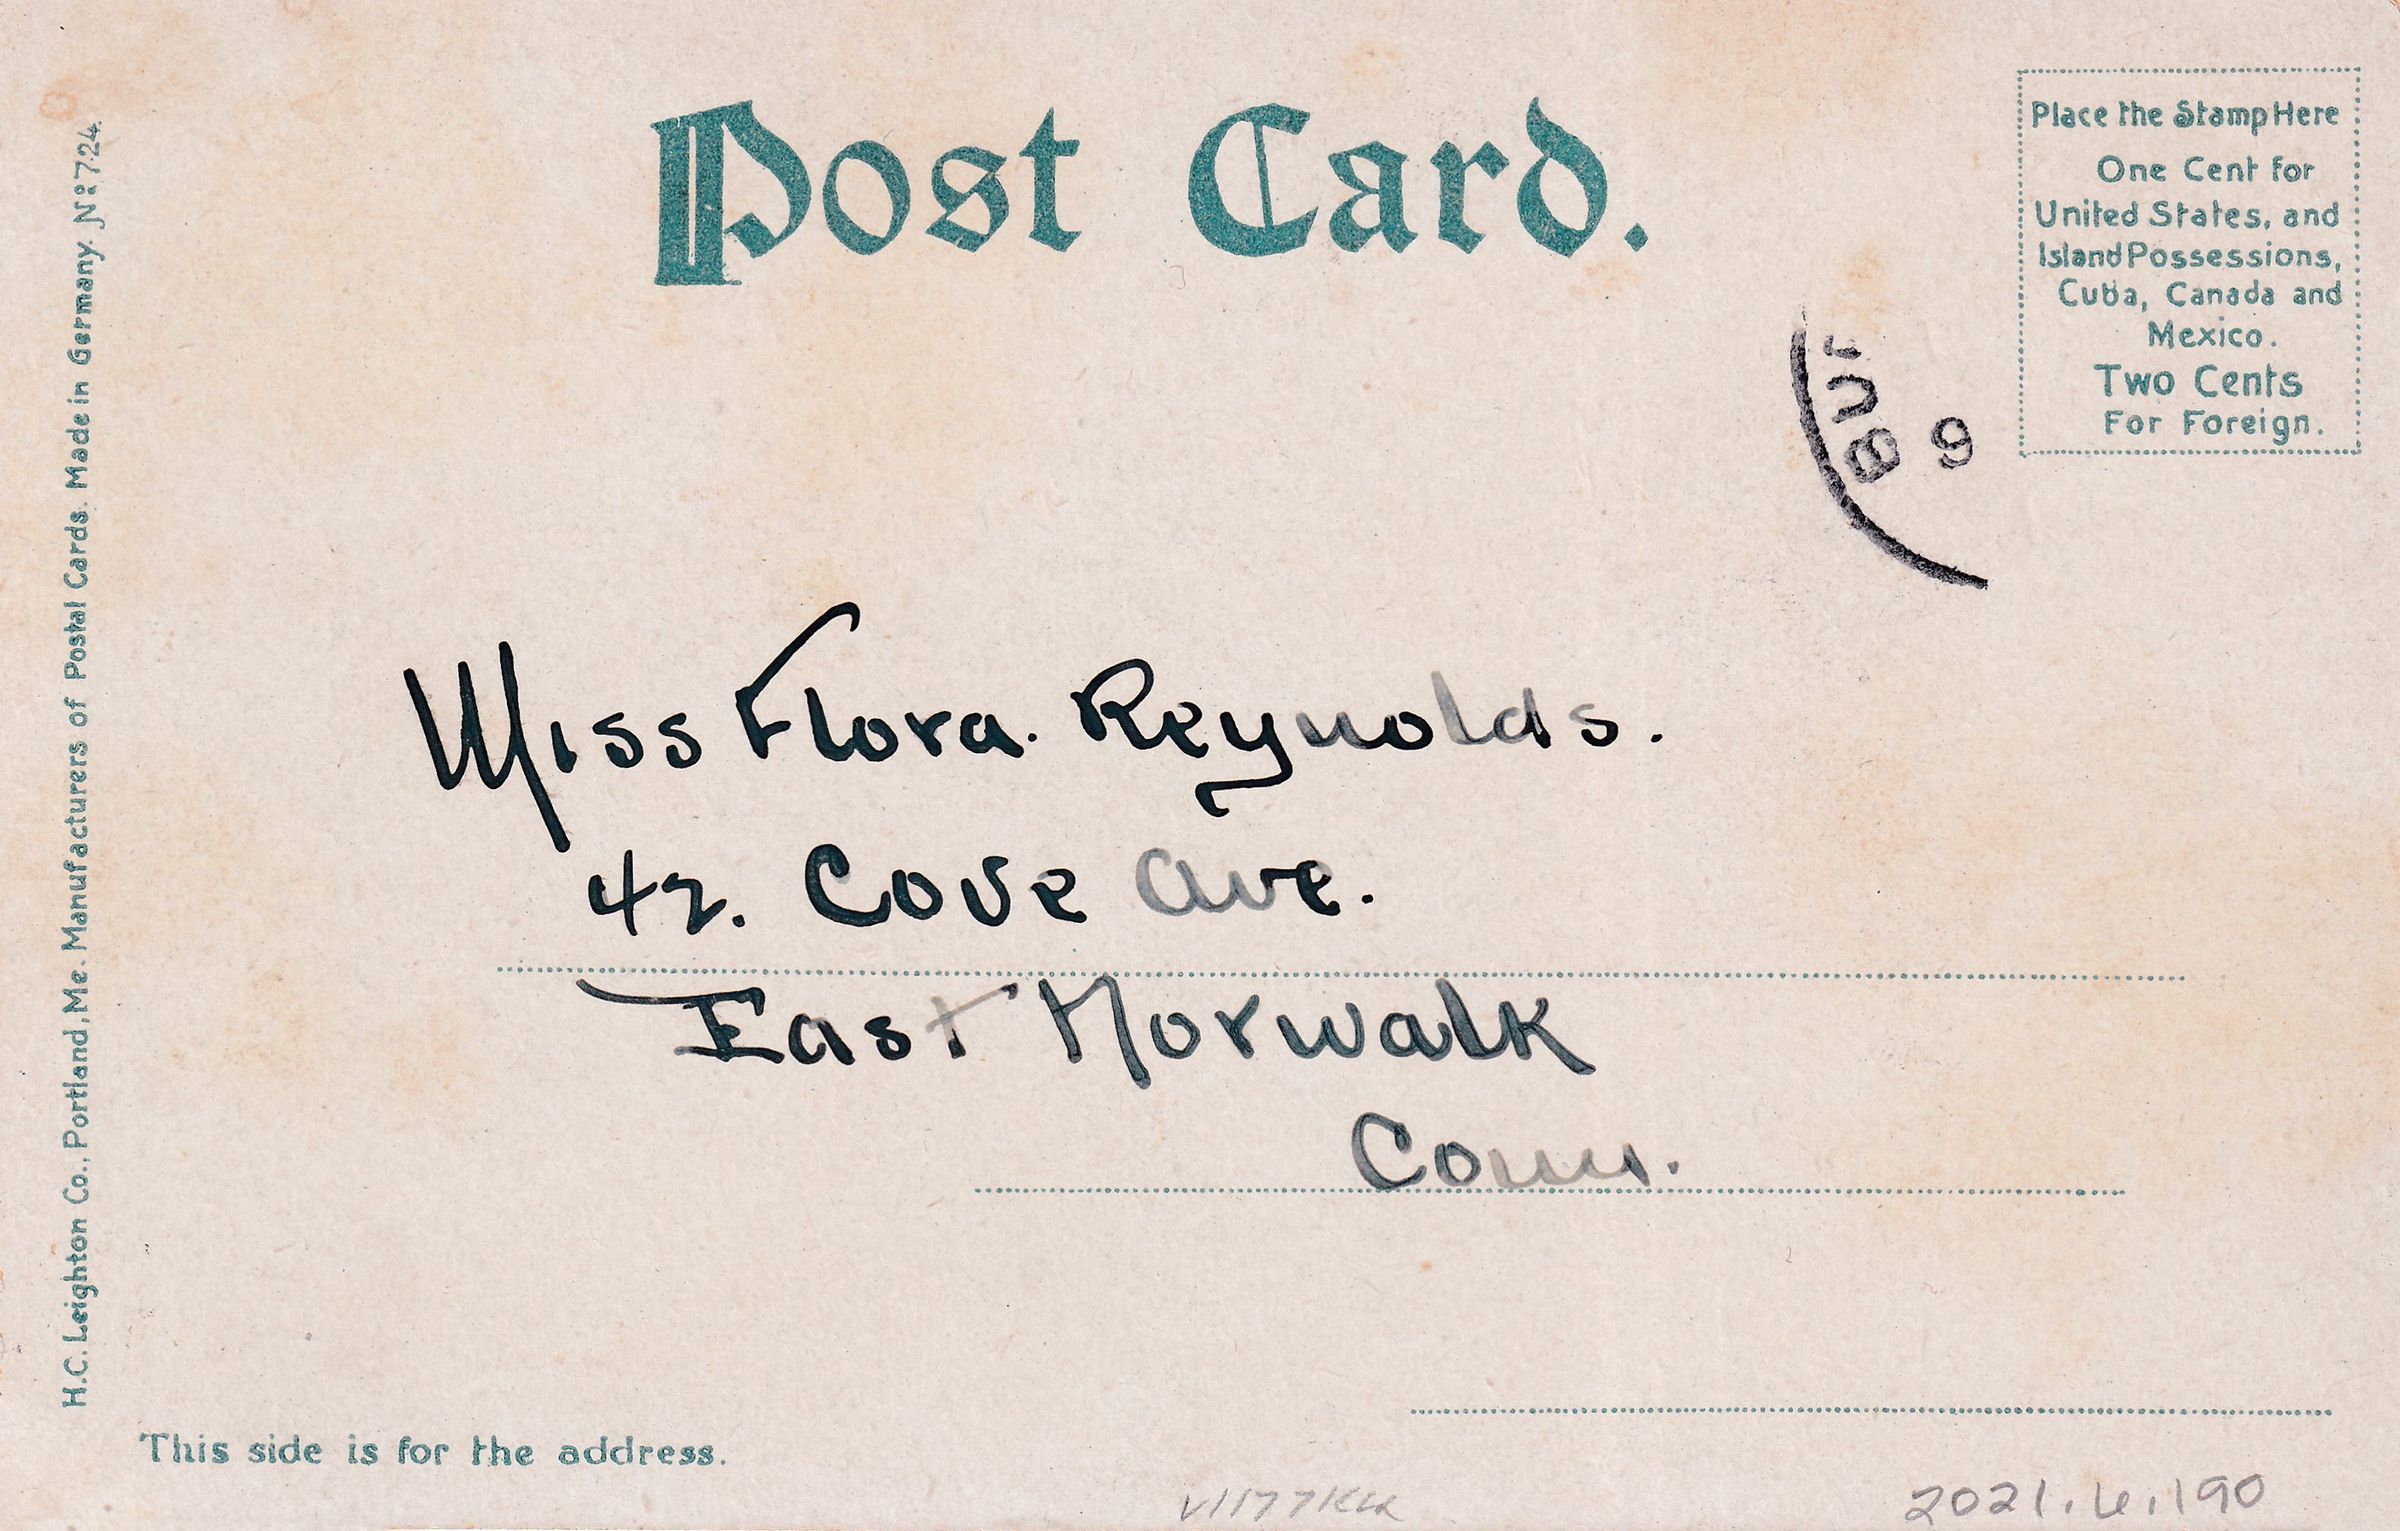 Post Card.
Place the Stamp Here
One Cent for
United States, and
Island Possessions,
Cuba, Canada and
Mexico.
Two Cents
For Foreign.
BUF
9
Miss Flora. Reynolds.
42. Cove Ave.
East Norwalk
Conn.
H.C. Leighton Co., Portland, Me. Manufacturers of Postal Cards. Made in Germany. No 724.
This side is for the address.
2021.6.190